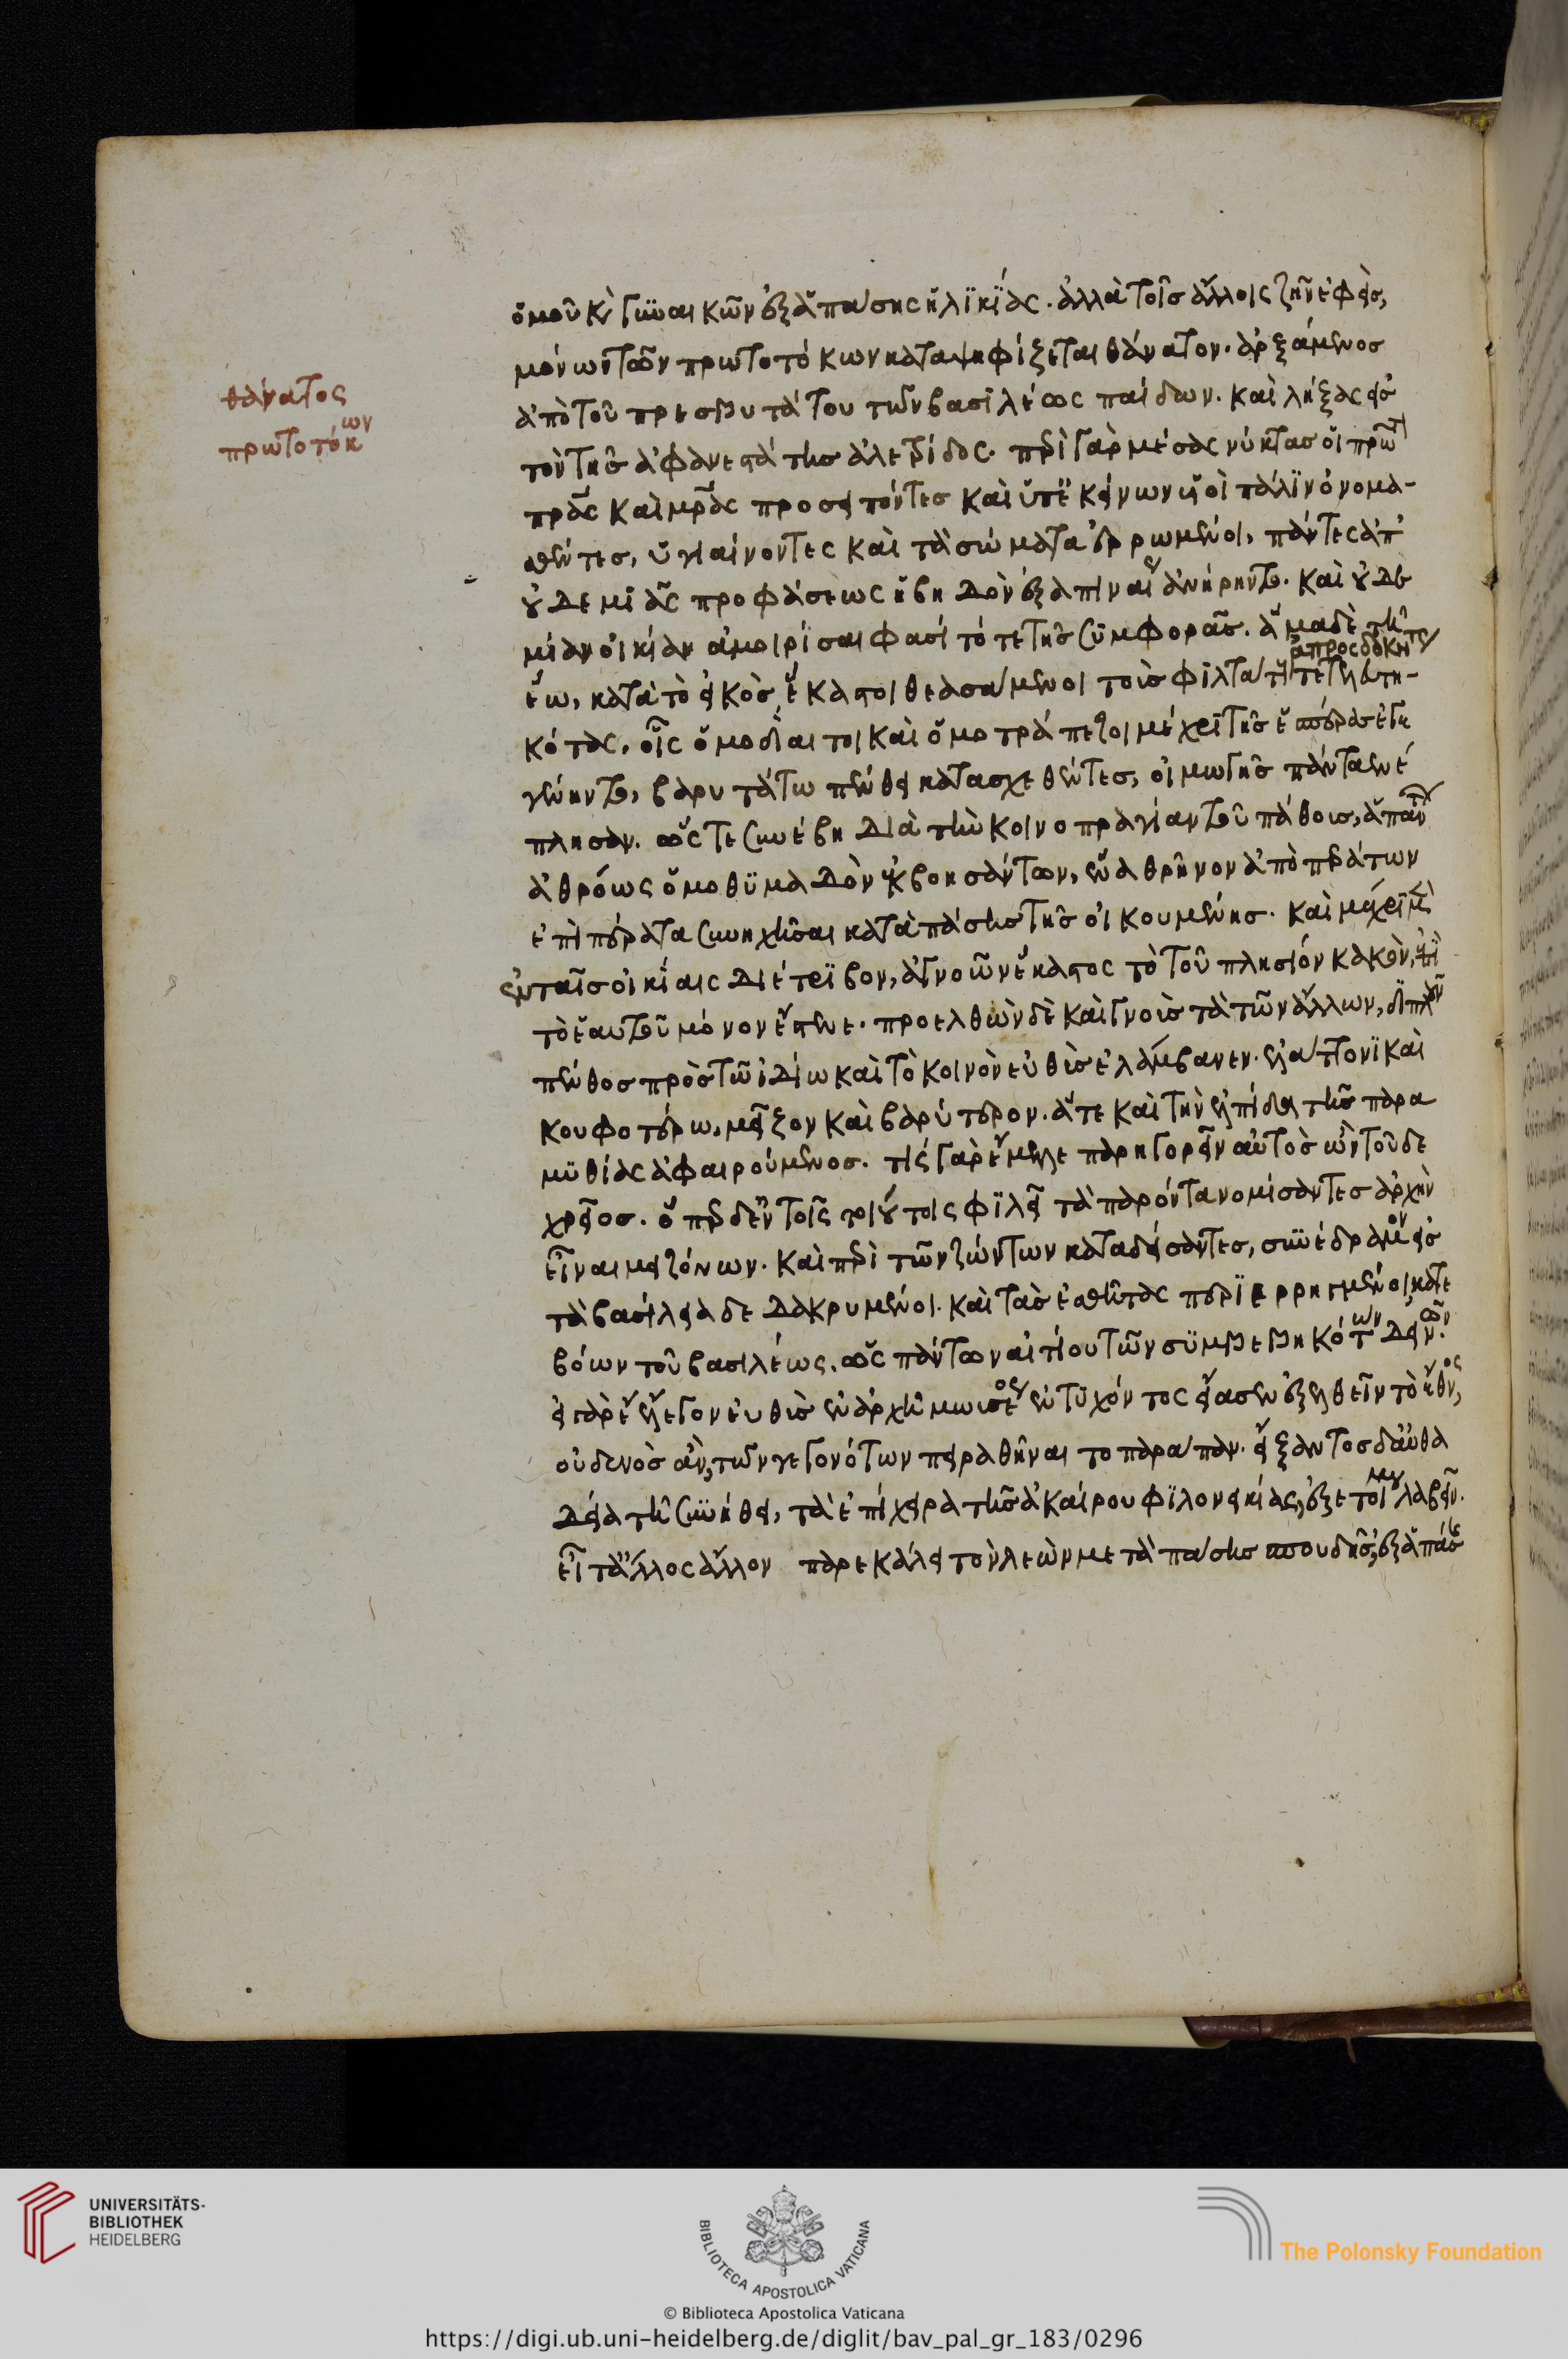 ὁμοῦ κ̀ γυναικῶν ἐξ ἁπάσης ἡλϊκΐας. ἀλλὰ τοῖς ἄλλοις ζῆν ἐφεὶς,
μόνων τῶν πρωτοτόκων καταψηφίζεται θάνατον. ἀρξάμενος
ἀπὸ τοῦ πρεσβυτάτου τῶν βασϊλέως παίδων. καὶ λήξας εἰς
τὸν τῆς ἀφανεστάτης ἀλετρίδος. περὶ γὰρ μέσας νύκτας οἱ πρῶτοι
θάνατος
πρωτοτόκων
πρας καὶ μρας προσειπόντες καὶ ὑπ' ἐκείνων υἱοὶ πάλϊν ὀνομα-
σθέντες, ὑγιαίνοντες καὶ τὰ σώματα ἐρρωμένοι, πάντες ἀπ'
οὐδεμϊᾶς προφάσεως ἡβηδὸν ἐξαπιναίως ἀνήρηντο. καὶ οὐδε
μίαν οἰκίαν ἀμοιρῖσαι φασὶ τότε τῆς συμφορᾶς. ἅμα δὲ τῆ
ἕω, κατὰ τὸ εἰκὸς, ἕκαστοι θεασάμενοι τοὺς φιλτάτους ἀπροσδοκήτως τετελευτη-
κότας, οἷς ὁμοδίαιτοι καὶ ὁμοτράπεζοι μέχρι τῆς ἑσπέρας ἐγε
γένηντο, βαρυτάτω πένθει κατασχεθέντες, οἰμωγῆς πάντα ἐνέ
πλησαν. ὥς τε συνέβη διὰ τὴν κοινοπραγίαν τοῦ πάθους, ἁπάντων
ἀθρόως ὁμοθϋμαδὸν ἐκβοησάντων, ἕνα θρῆνον ἀπὸ περάτων
ἐπὶ πέρατα συνηχῆσαι κατὰ πάσης τῆς οἰκουμένης. καὶ μέχρι μὲν
ἐν ταῖς οἰκίαις διέτριβον, ἀγνοῶν ἕκαστος τὸ τοῦ πλησίον κακὸν, ἐπὶ
τὸ ἑαυτοῦ μόνον ἔστενε. προελθὼν δὲ καὶ γνοὺς τὰ τῶν ἄλλων, διπλοῦν
πένθος πρὸς τῶ ἰδίω καὶ τὸ κοινὸν εὐθὺς ἐλάμβανεν. ἐλάττονϊ καὶ
κουφοτέρω, μεῖζον καὶ βαρύτερον. ἅτε καὶ τὴν ἐλπίδα τῆς παρα
μϋθίας ἀφαιρούμενος. τίς γὰρ ἔμελλε παρηγορεῖν αὐτὸς ὢν τοῦδε
χρεῖος. ὅπερ δ' ἐν τοῖς τοιούτοις φϊλεῖ τὰ παρόντα νομίσαντες ἀρχὴν
εἶναι μειζόνων. καὶ περὶ τῶν ζώντων καταδείσαντες, συνέδραμον εἰς
τὰ βασίλεια δεδακρυμένοι. καὶ τὰς ἐσθῆτας περϊερρηγμένοι, κατε
βόων τοῦ βασιλέως, ὡς πάντων αἰτίου τῶν συμβεβηκότων δεινῶν.
εἰ γὰρ ἔλεγον εὐθὺς ἐν ἀρχῆ μωυσέως ἐντϋχόντος εἴασεν ἐξελθεῖν τὸ ἔθνος,
οὐδενὸς ἂν, τῶν γεγονότων πειραθῆναι το παράπαν. εἴξαντος δ' αὐθα
δεία τῆ συνήθει, τὰ ἐπίχειρα τῆς ἀκαίρου φϊλονεικίας, ἐξ ἑτοίμου λαβεῖν.
εἶτ' ἄλλος ἄλλον παρεκάλει τὸν λεὼν μετὰ πάσης σπουδῆς, ἐξ ἁπάσης
UNIVERSITÄTS-
BIBLIOTHEK
HEIDELBERG
BIBLIOTECA APOSTOLICA VATICANA
The Polonsky Foundation
© Biblioteca Apostolica Vaticana
https://digi.ub.uni-heidelberg.de/diglit/bav_pal_gr_183/0296